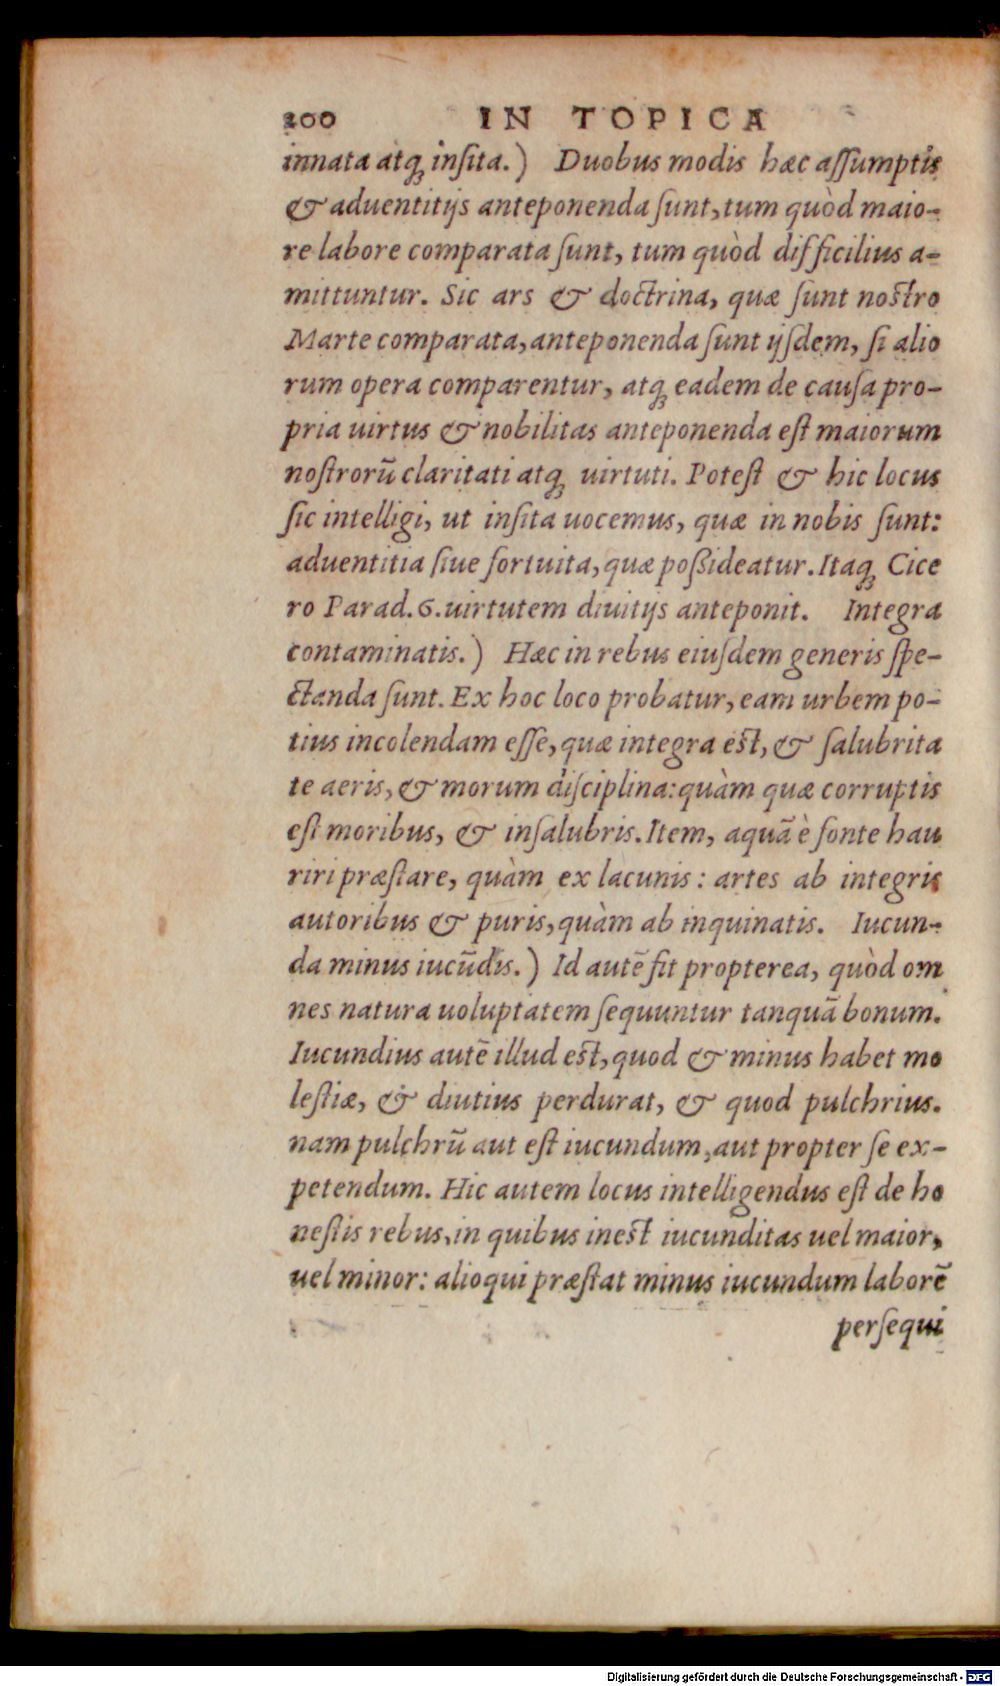 200 IN TOPICA
innata atq; insita.) Duobus modis hæc assumptis
& aduentitijs anteponenda sunt, tum quòd maio-
re labore comparata sunt, tum quòd difficilius a-
mittuntur. Sic ars & doctrina, quæ sunt nostro
Marte comparata, anteponenda sunt ijsdem, si alio
rum opera comparentur, atq; eadem de causa pro-
pria uirtus & nobilitas anteponenda est maiorum
nostrorũ claritati atq; uirtuti. Potest & hic locus
sic intelligi, ut insita uocemus, quæ in nobis sunt:
aduentitia siue fortuita, quæ possideatur. Itaq; Cice
ro Parad. 6. uirtutem diuitijs anteponit. Integra
contaminatis.) Hæc in rebus eiusdem generis spe-
ctanda sunt. Ex hoc loco probatur, eam urbem po-
tius incolendam esse, quæ integra est, & salubrita
te aeris, & morum disciplina: quàm quæ corruptis
est moribus, & insalubris. Item, aquã è fonte hau
riri præstare, quàm ex lacunis: artes ab integris
autoribus & puris, quàm ab inquinatis. Iucun-
da minus iucũdis.) Id autẽ fit propterea, quòd om
nes natura uoluptatem sequuntur tanquã bonum.
Iucundius autẽ illud est, quod & minus habet mo
lestiæ, & diutius perdurat, & quod pulchrius.
nam pulchrũ aut est iucundum, aut propter se ex-
petendum. Hic autem locus intelligendus est de ho
nestis rebus, in quibus inest iucunditas uel maior,
uel minor: alioqui præstat minus iucundum laborẽ
persequi
Digitalisierung gefördert durch die Deutsche Forschungsgemeinschaft - DFG